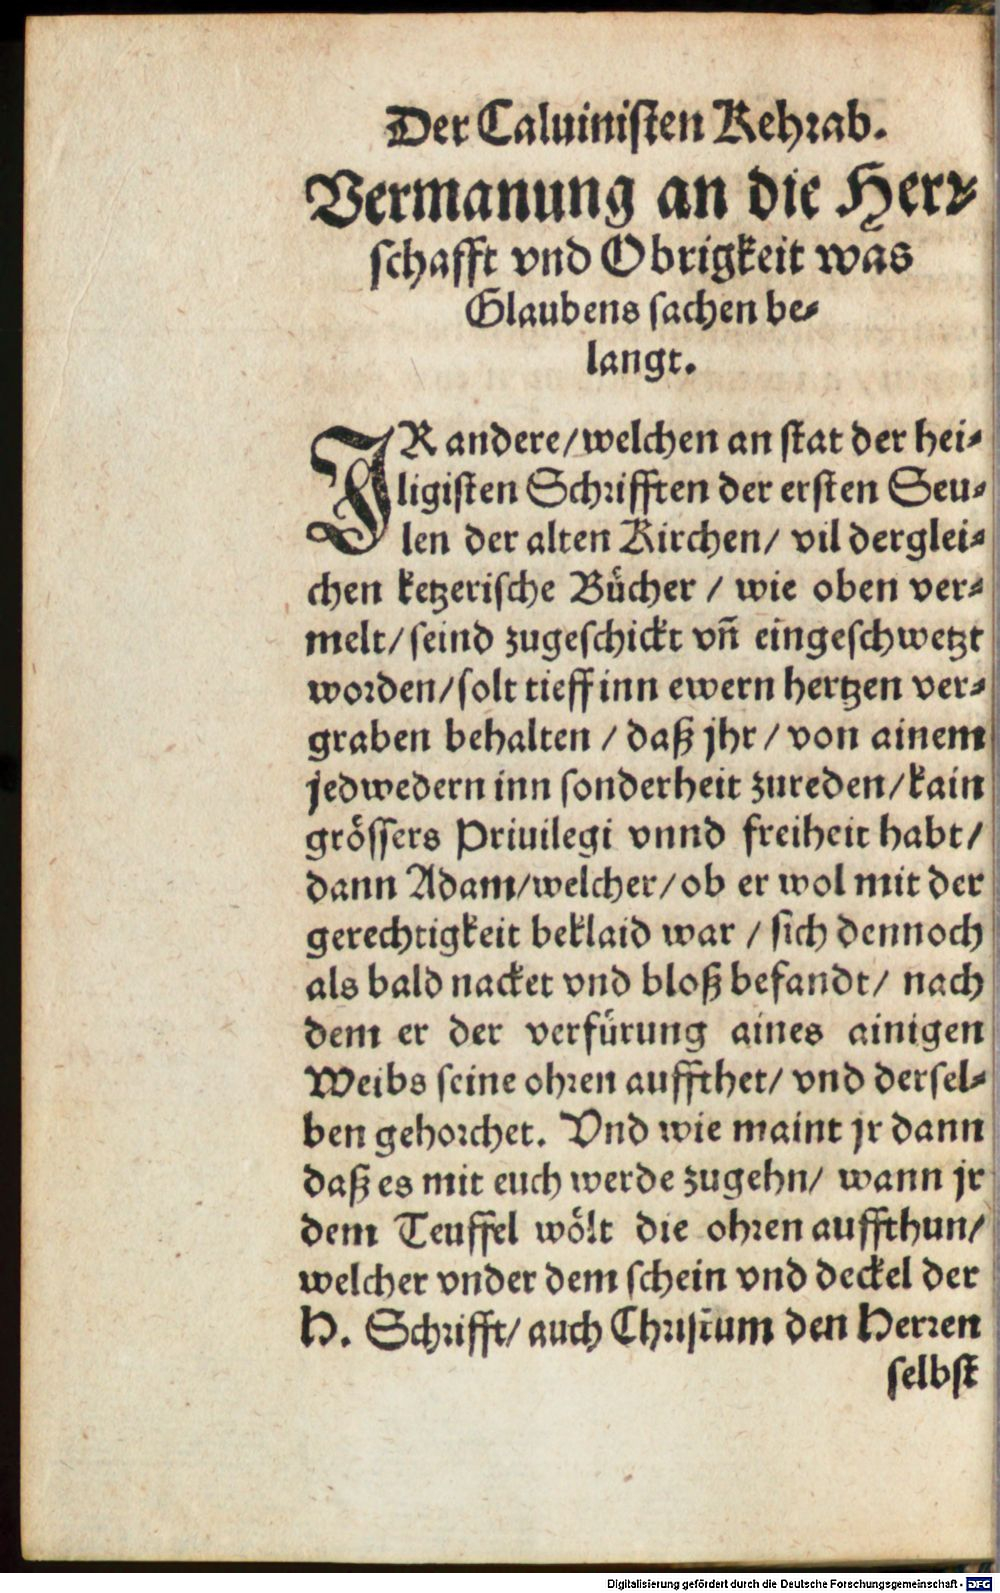 Der Caluinisten Kehrab.
Vermanung an die Herr⸗
schafft vnd Obrigkeit was
Glaubens sachen be⸗
langt.
IR andere/welchen an stat der hei⸗
ligisten Schrifften der ersten Seu⸗
len der alten Kirchen/ vil derglei⸗
chen ketzerische Bücher / wie oben ver⸗
melt/seind zugeschickt vñ eingeschwetzt
worden/solt tieff inn ewern hertzen ver⸗
graben behalten / daß jhr / von ainem
jedwedern inn sonderheit zureden/kain
grössers Priuilegi vnnd freiheit habt/
dann Adam/welcher/ob er wol mit der
gerechtigkeit beklaid war / sich dennoch
als bald nacket vnd bloß befandt/ nach
dem er der verfürung aines ainigen
Weibs seine ohren auffthet/ vnd dersel⸗
ben gehorchet. Vnd wie maint jr dann
daß es mit euch werde zugehn/ wann jr
dem Teuffel wölt die ohren auffthun/
welcher vnder dem schein vnd deckel der
H. Schrifft/ auch Christum den Herren
selbst
Digitalisierung gefördert durch die Deutsche Forschungsgemeinschaft - DFG